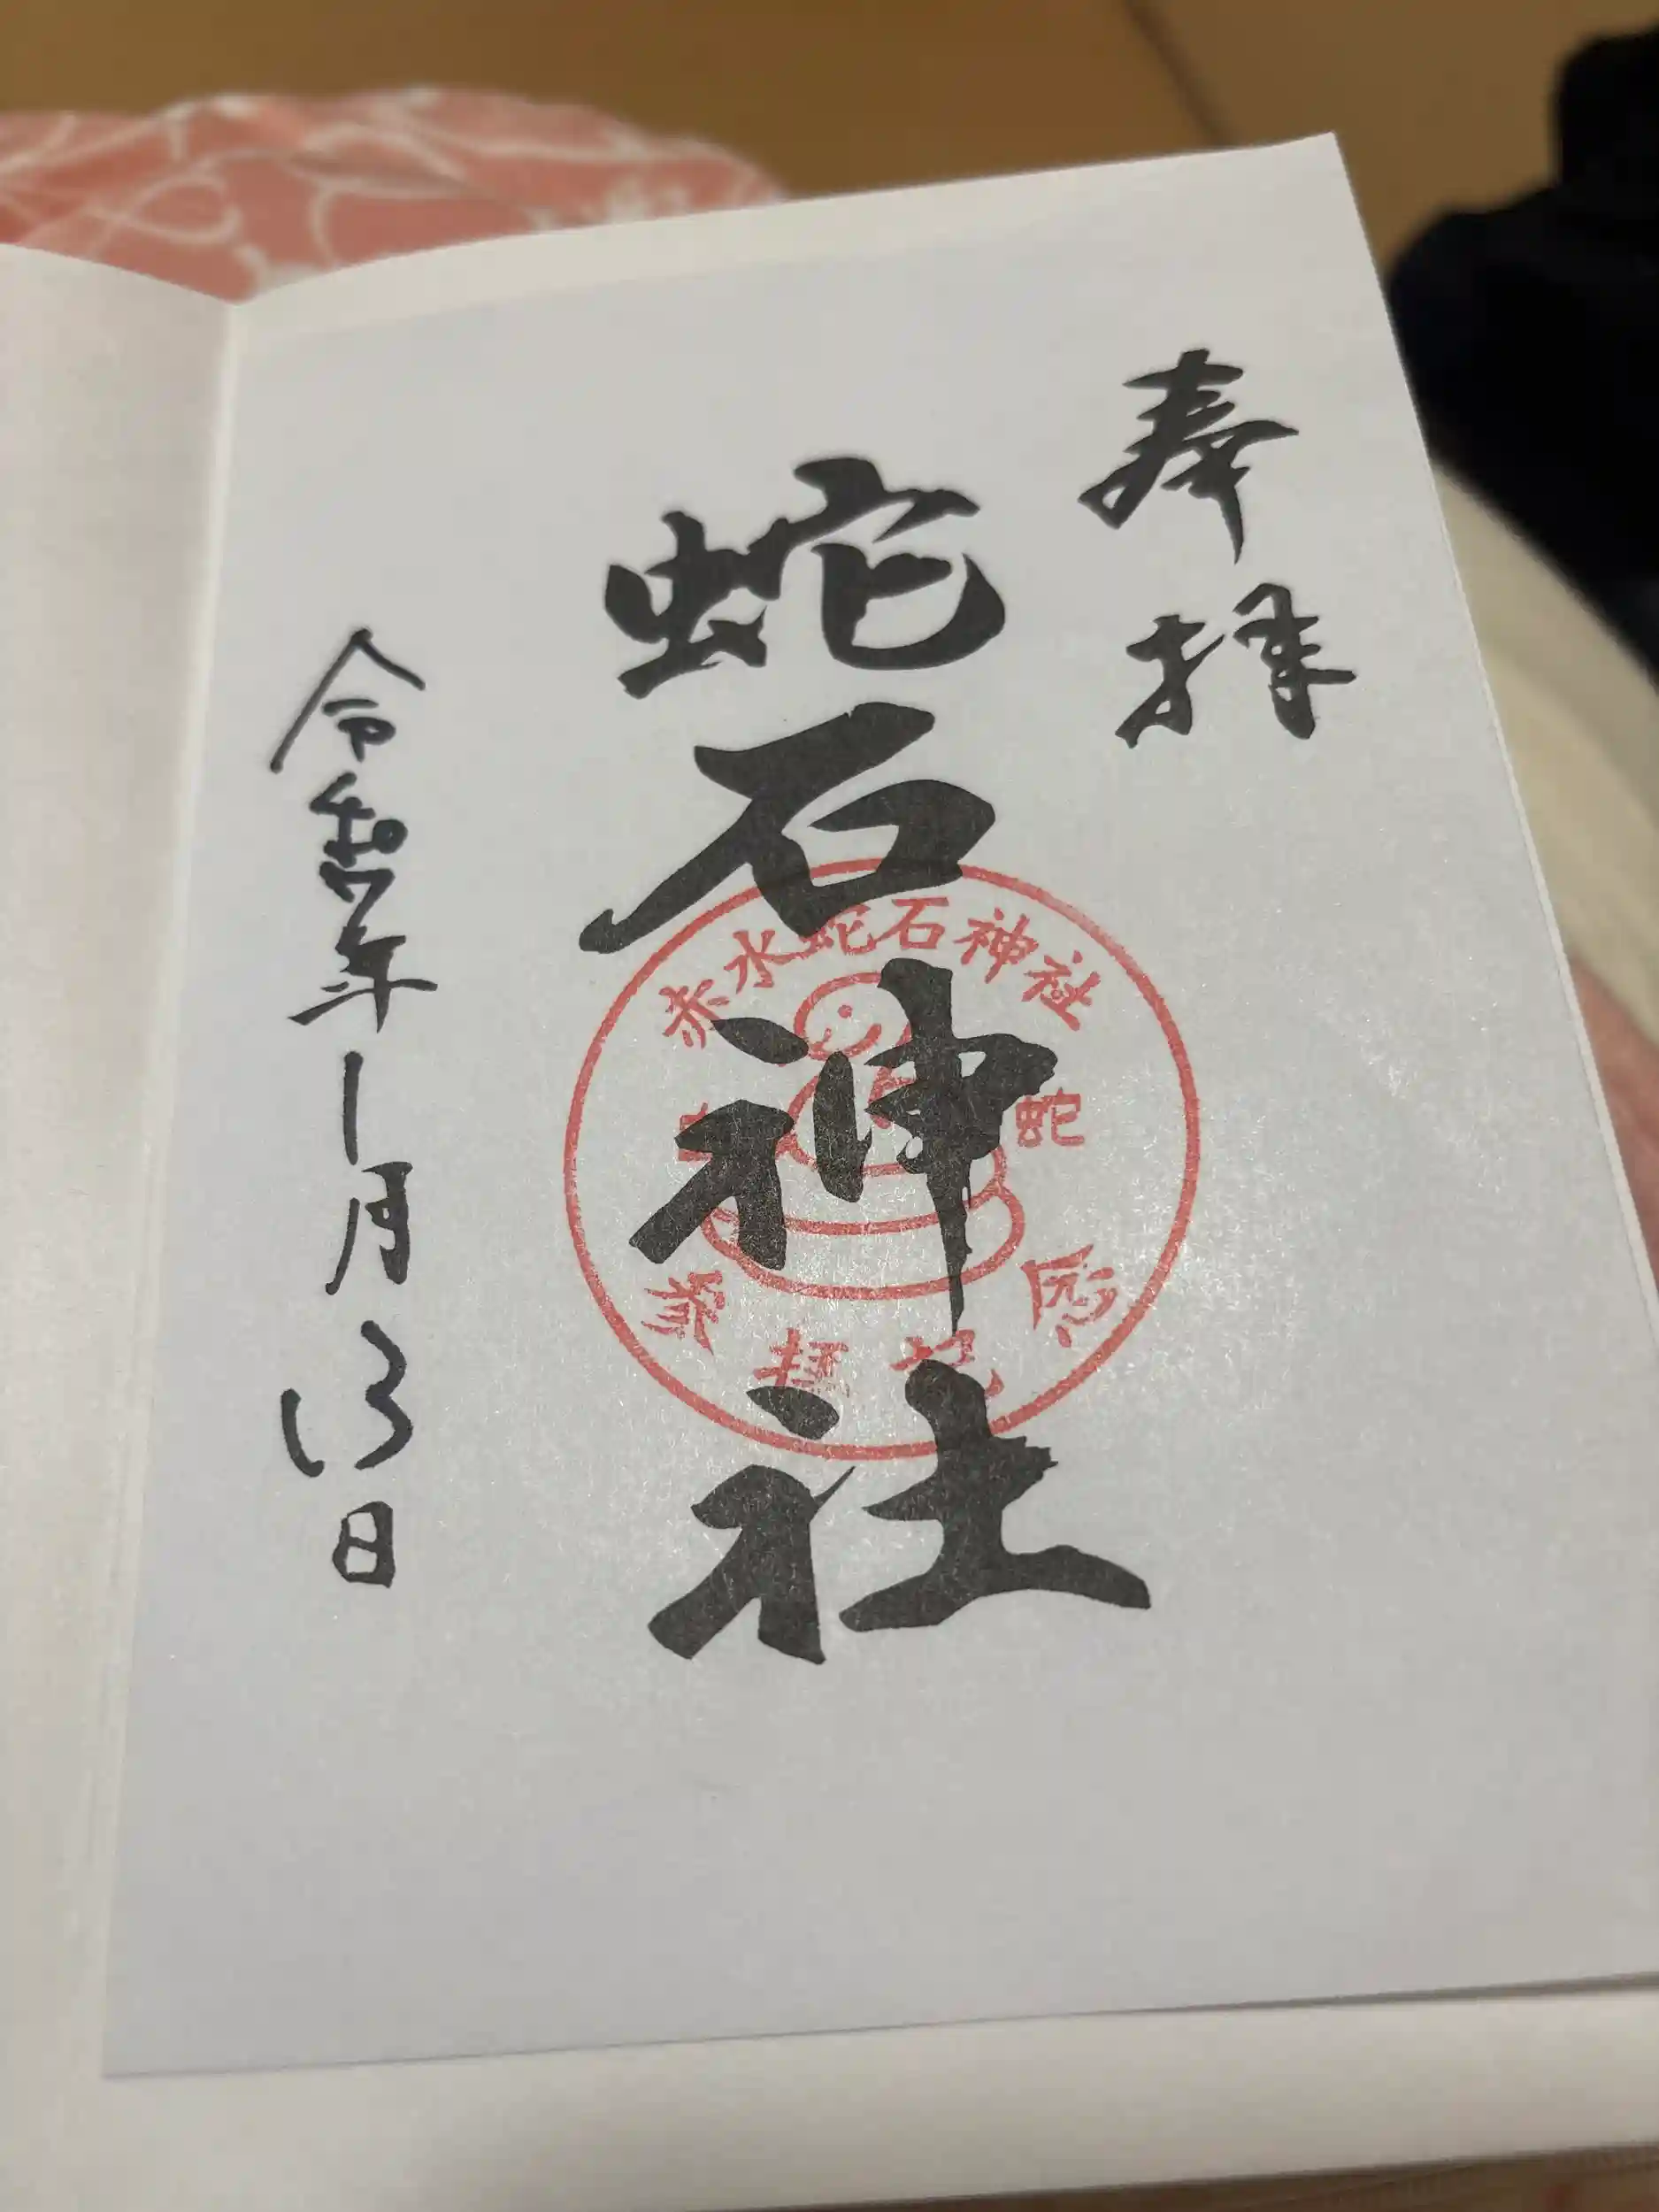 奉拝
蛇石神社
令和7年1月13日
赤水蛇石神社
蛇
参拝記念